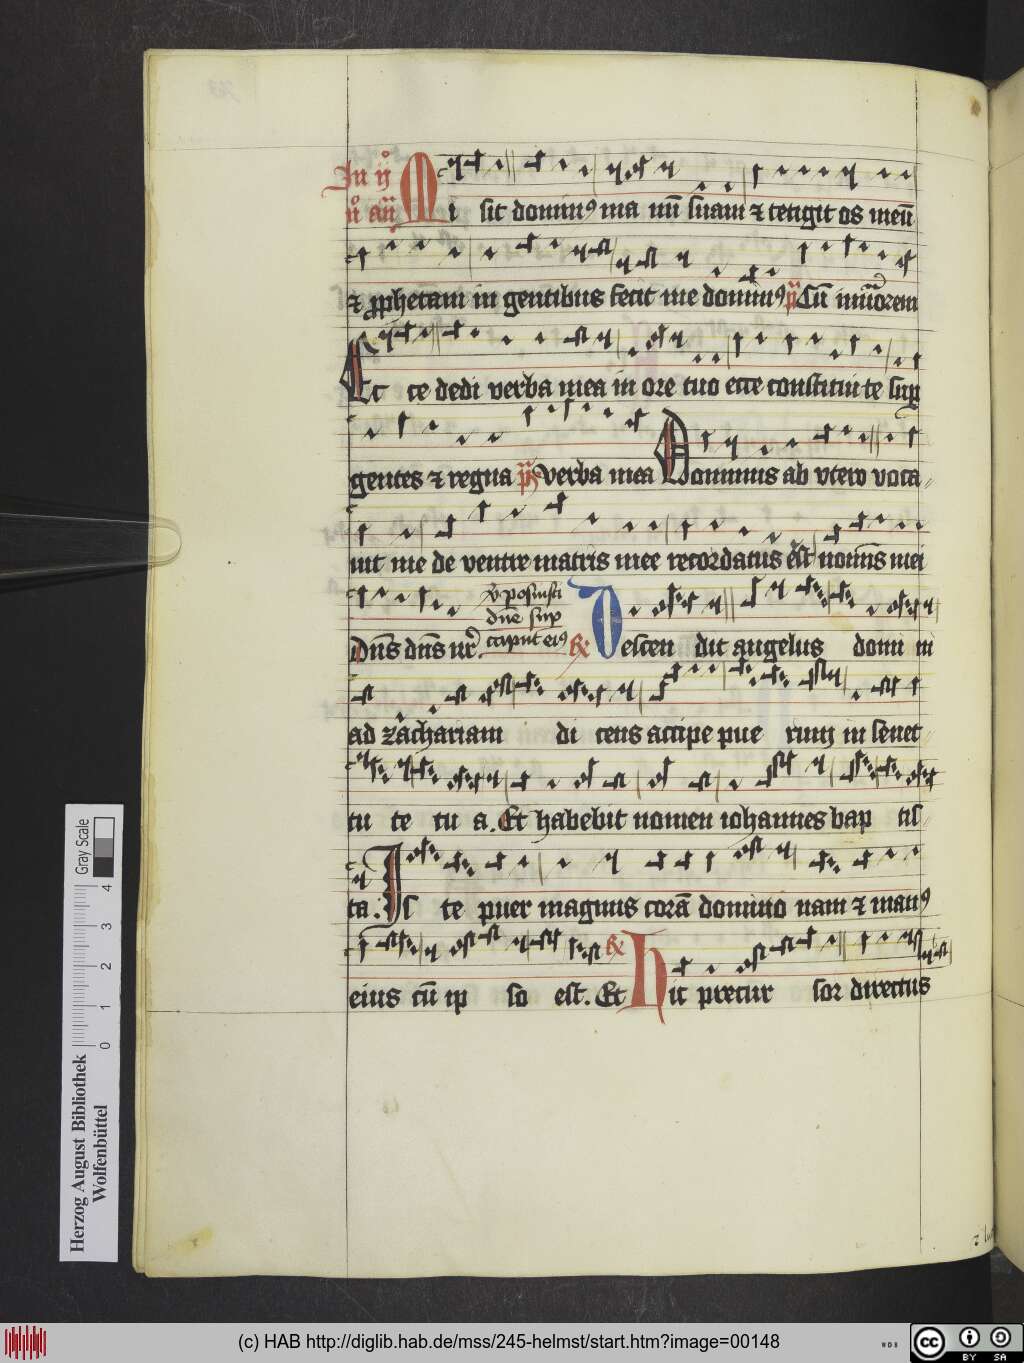 In ij°
n° an̄ Mi sit dominꝰ ma nū suam ⁊ tetigit os meū
⁊ ꝓphetam in gentibus fecit me dominꝰ p̄s Cū inuoc̄orem
Ec ce dedi verba mea in ore tuo ecce constitui te suꝑ
gentes ⁊ regna p̄s Verba mea Dominus ab vtero voca
uit me de ventre matris mee recordatus est nominis mei
Dn̄s dn̄s nr̄
℣ posuisti
dn̄e sup
caput eiꝰ
℞ Descen dit angelus domi ni
ad zachariam di cens accipe pue rum in senec
tu te tu a. Et habebit nomen iohannes bap tis
ta. Is te puer magnus corā domino nam ⁊ manꝰ
eius cū ip so est. Et ℞ Hic precur sor directus
Gray Scale
0 1 2 3 4
Herzog August Bibliothek
Wolfenbüttel
(c) HAB http://diglib.hab.de/mss/245-helmst/start.htm?image=00148
WDB
cc BY SA